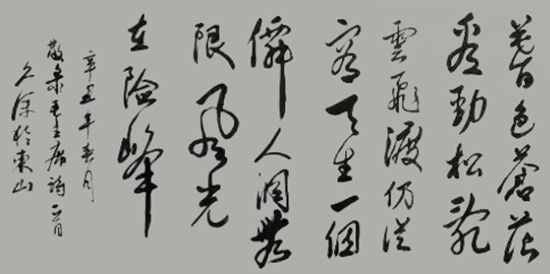 暮色蒼茫
看勁松亂
雲飛渡仍從
容天生一個
僊人洞無
限風光
在險峰
辛丑年春月
敬录毛主席詩
於東山